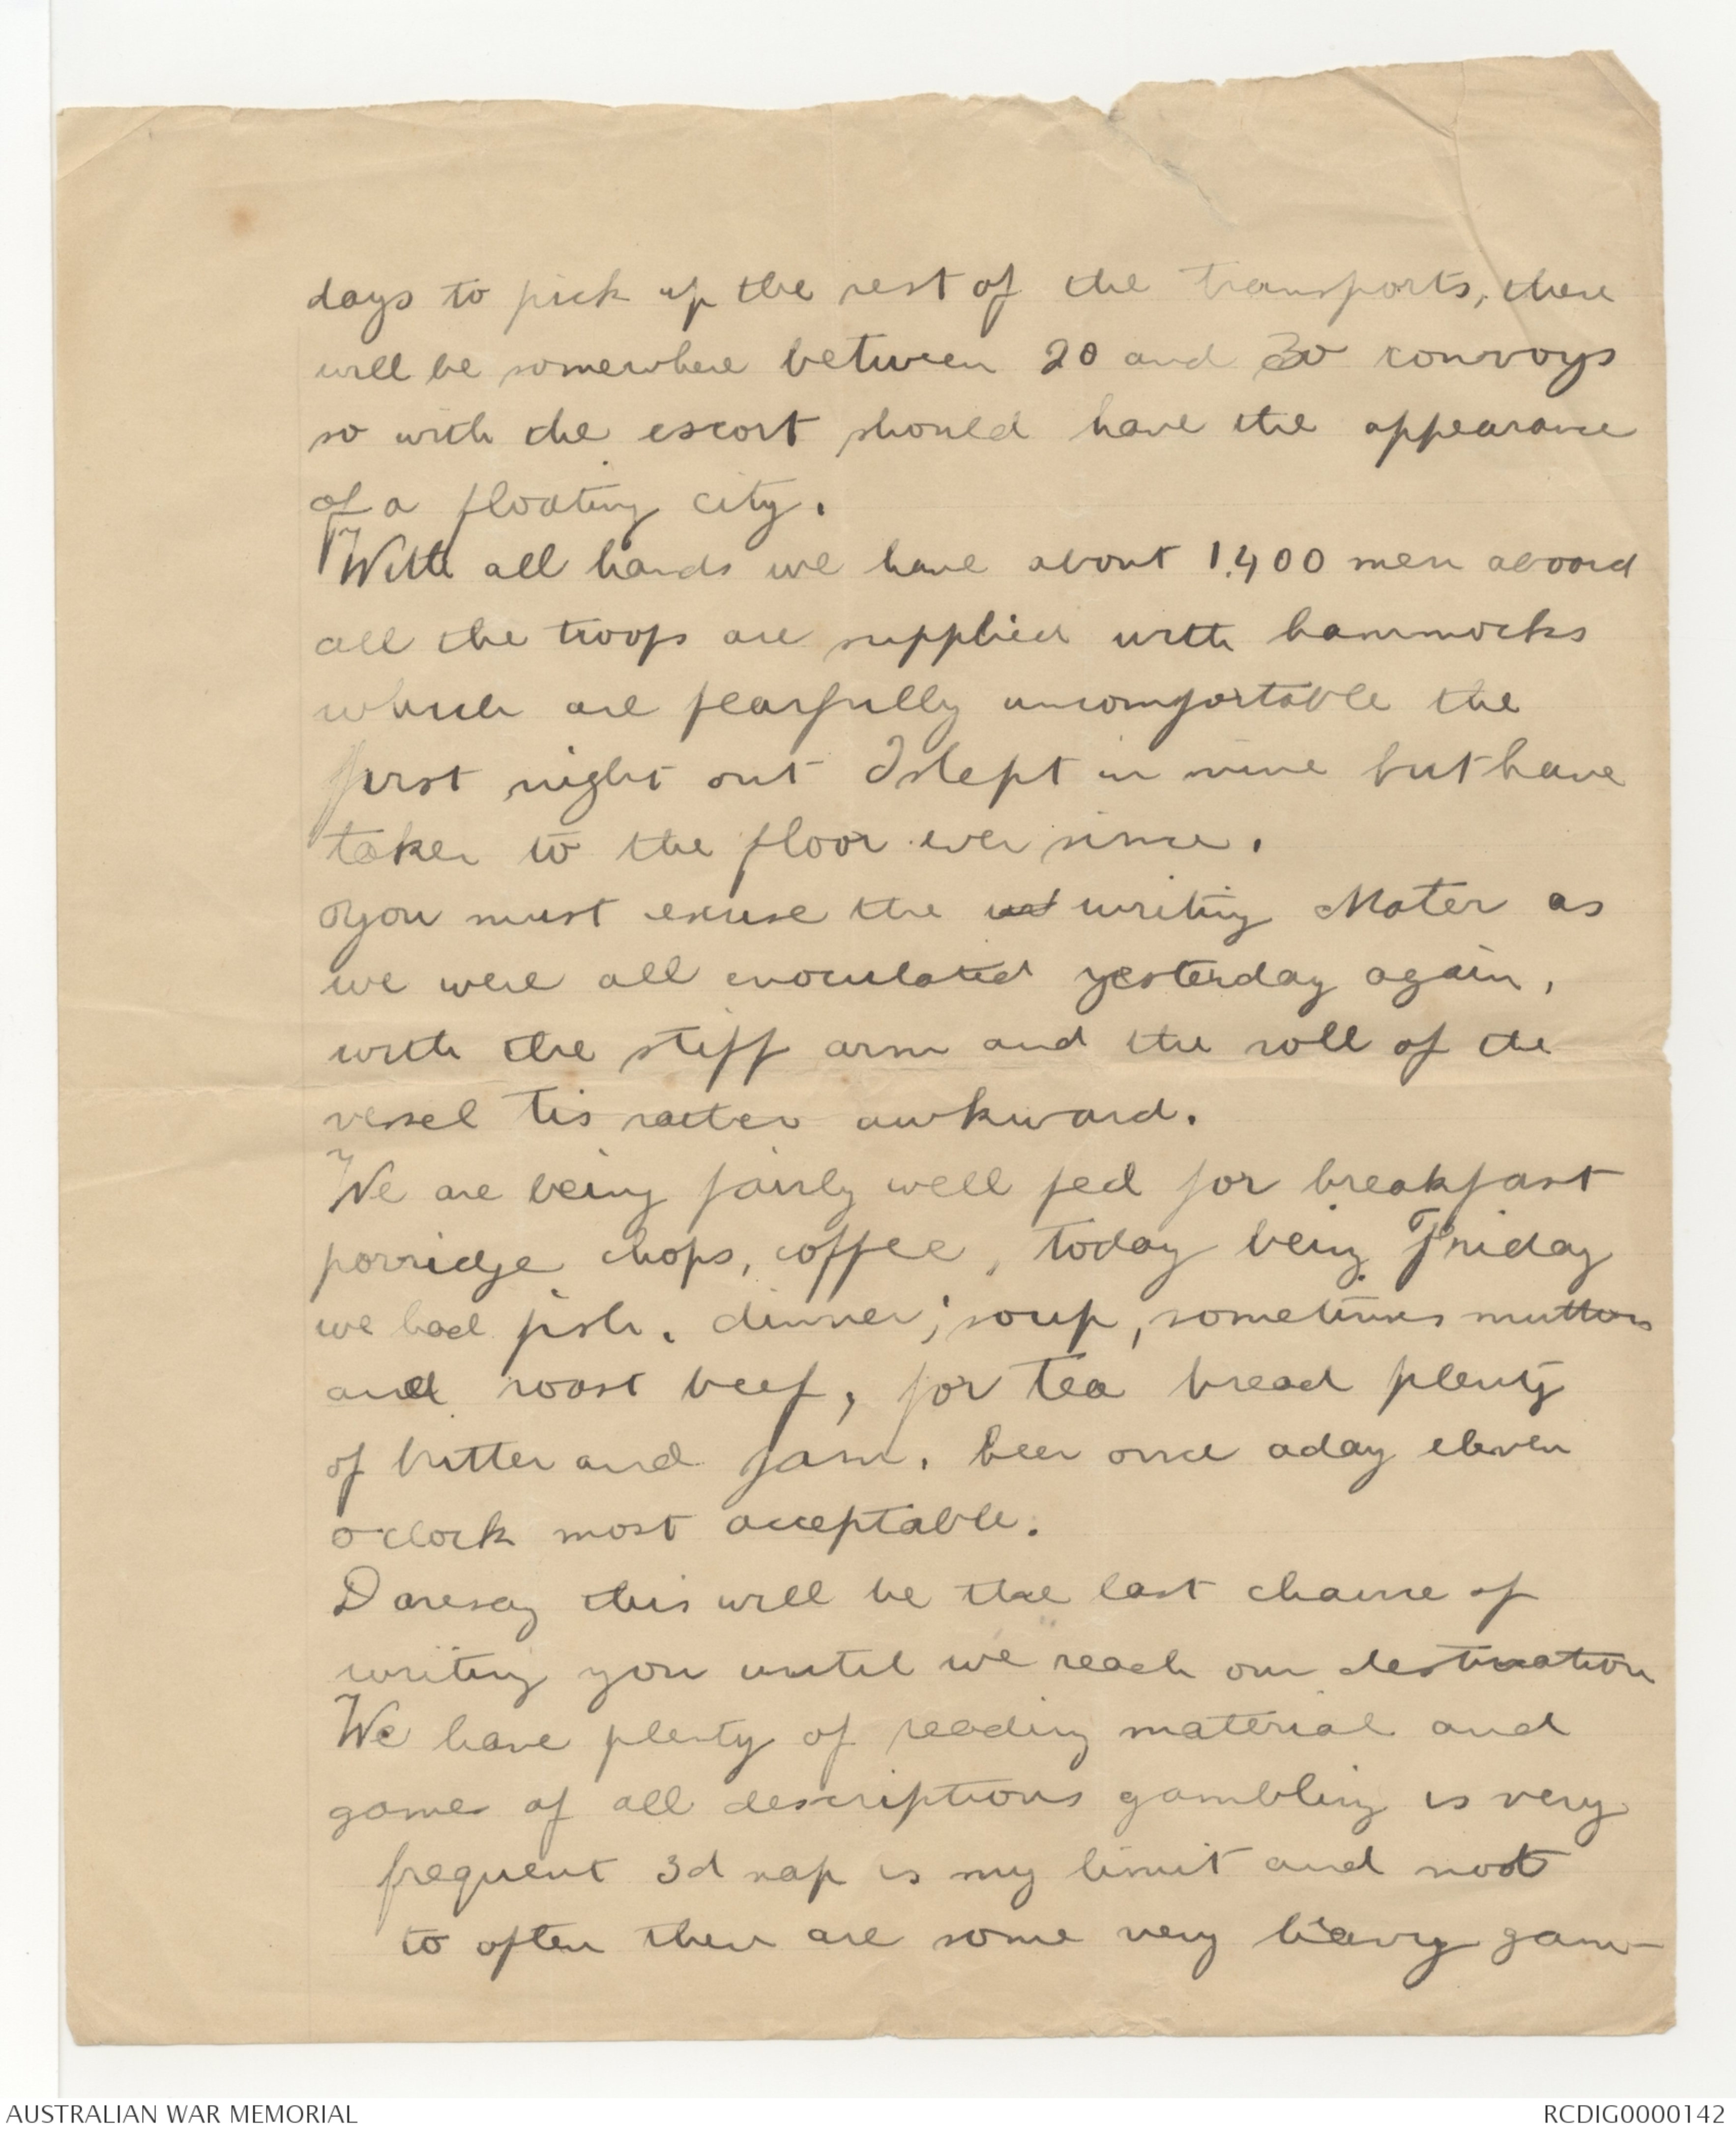 days to pick up the rest of the transports, there
will be somewhere between 20 and 30 convoys
so with the escort should have the appearance
of a floating city.
With all hands we have about 1,400 men aboard
all the troops are supplied with hammocks
which are fearfully uncomfortable the
first night out I slept in mine but have
taken to the floor ever since.
You must excuse the writing Mater as
we were all inoculated yesterday again,
with the stiff arm and the roll of the
vessel tis rather awkward.
We are being fairly well fed for breakfast
porridge chops, coffee, today being Friday
we had fish. dinner; soup, sometimes mutton
and roast beef, for tea bread plenty
of butter and jam. beer once a day eleven
o'clock most acceptable.
Daresay this will be the last chance of
writing you until we reach our destination
We have plenty of reading material and
games of all descriptions gambling is very
frequent 3d nap is my limit and not
to often there are some very heavy gam-
AUSTRALIAN WAR MEMORIAL
RCDIG0000142